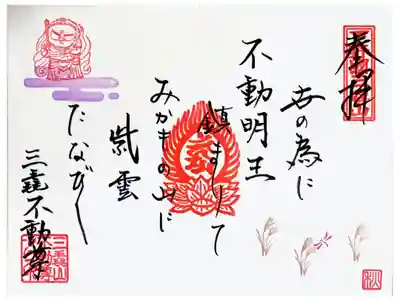 奉拝
世の為に
不動明王
鎮まりて
みかもの山に
紫雲
たなびく
三毳不動尊